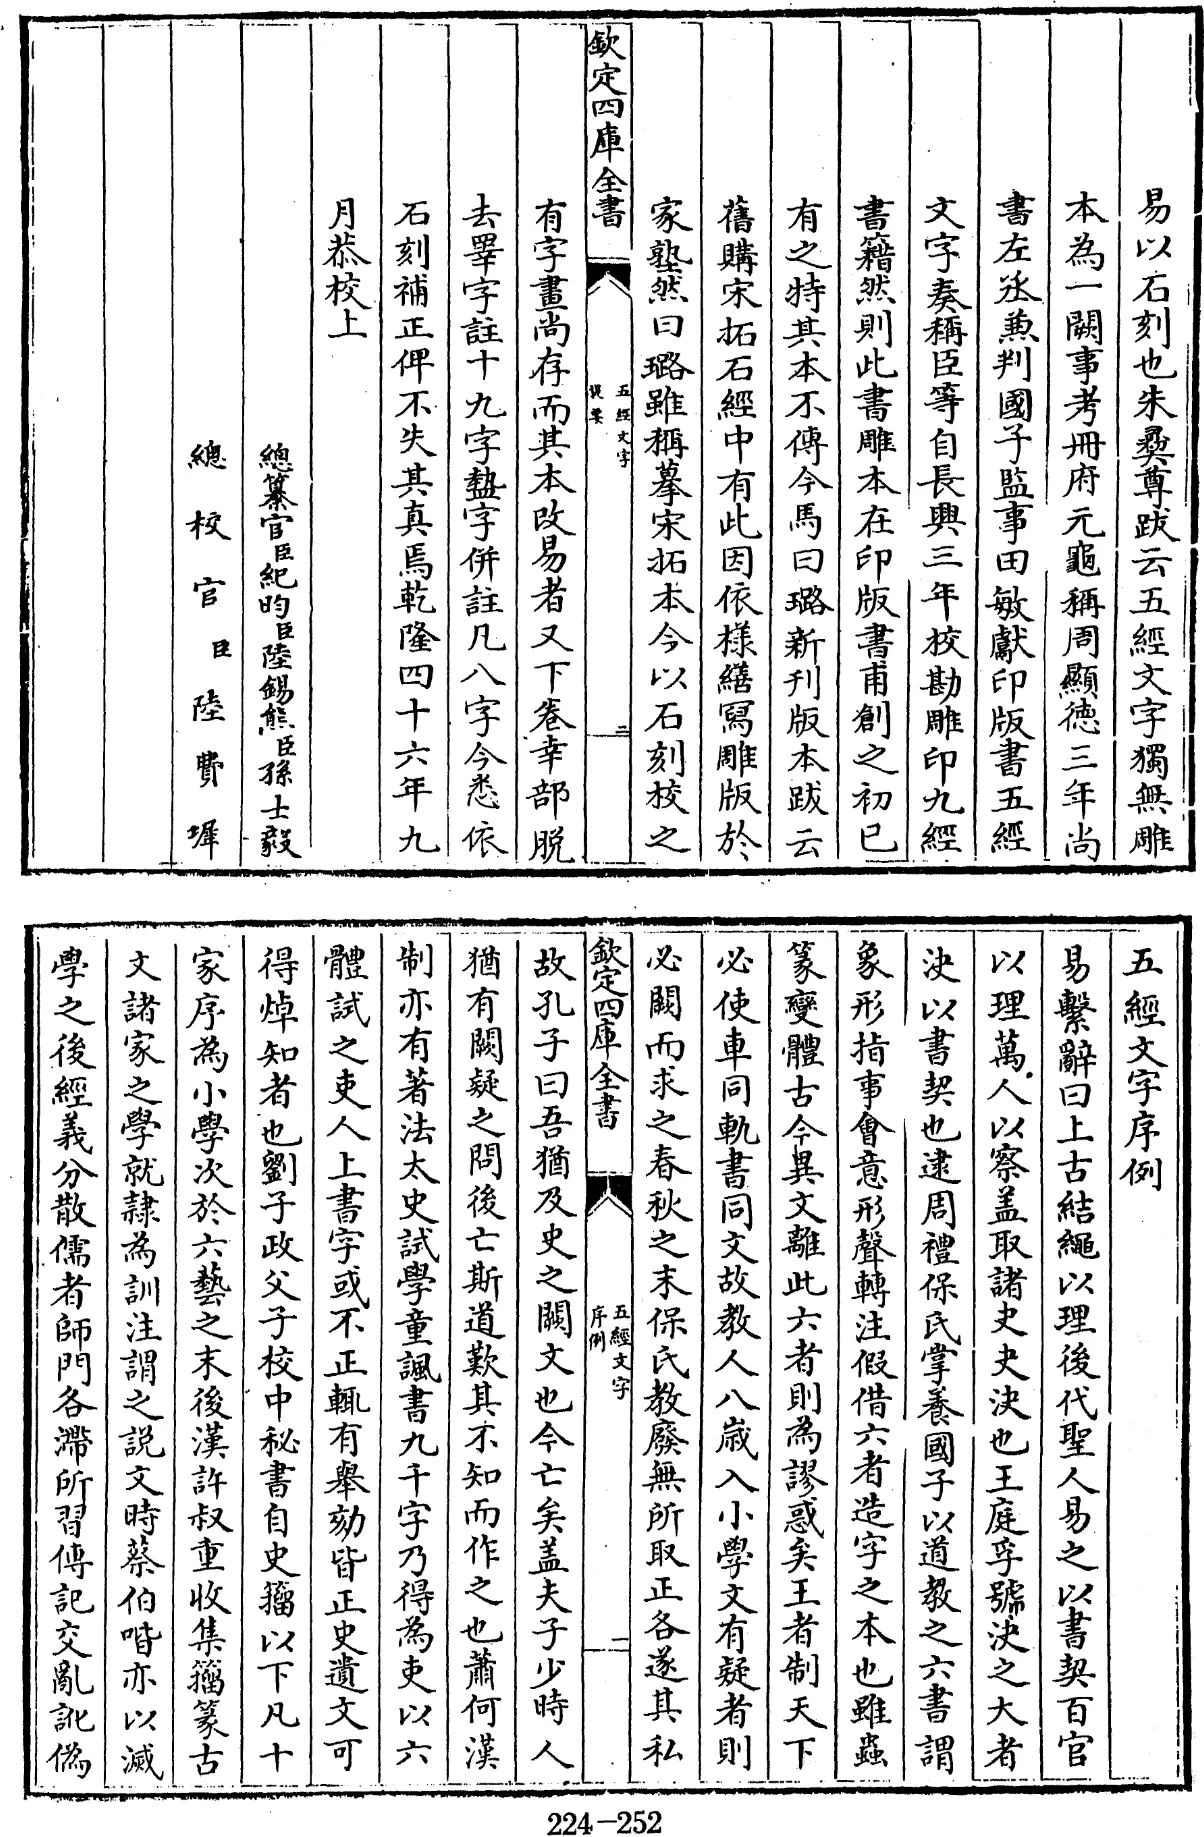 易以石刻也朱彞尊跋云五經文字獨無雕
本為一闕事考冊府元龜稱周顯徳三年尚
書左丞兼判國子監事田敏獻印版書五經
文字奏稱臣等自長興三年校勘雕印九經
書籍然則此書雕本在印版書甫創之初已
有之特其本不傳今馬曰璐新刋版本跋云
舊購宋拓石經中有此因依様繕寫雕版於
家塾然曰璐雖稱摹宋拓本今以石刻校之
欽定四庫全書
五經文字
提要
二
有字畫尚存而其本改易者又下卷幸部脱
去睪字註十九字盩字併註凡八字今悉依
石刻補正俾不失其真焉乾隆四十六年九
月恭校上
總纂官臣紀昀臣陸錫熊臣孫士毅
總校官臣陸費墀
五經文字序例
易繫辭曰上古結繩以理後代聖人易之以書契百官
以理萬人以察盖取諸夬夬決也王庭孚號決之大者
決以書契也逮周禮保氏掌養國子以道教之六書謂
象形指事會意形聲轉注假借六者造字之本也雖蟲
篆變體古今異文離此六者則為謬惑矣王者制天下
必使車同軌書同文故教人八嵗入小學文有疑者則
必闕而求之春秋之末保氏教廢無所取正各遂其私
欽定四庫全書
五經文字
序例
一
故孔子曰吾猶及史之闕文也今亡矣盖夫子少時人
猶有闕疑之問後亡斯道歎其不知而作之也蕭何漢
制亦有著法太史試學童諷書九千字乃得為吏以六
體試之吏人上書字或不正輒有舉劾皆正史遺文可
得焯知者也劉子政父子校中秘書自史籀以下凡十
家序為小學次於六藝之末後漢許叔重收集籀篆古
文諸家之學就隸為訓注謂之説文時蔡伯喈亦以滅
學之後經義分散儒者師門各滯所習傳記交亂訛偽
224-252